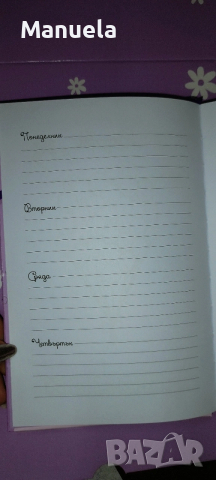 Manuela
Понеделник
Вторник
Сряда
Четвъртък
BAZAR